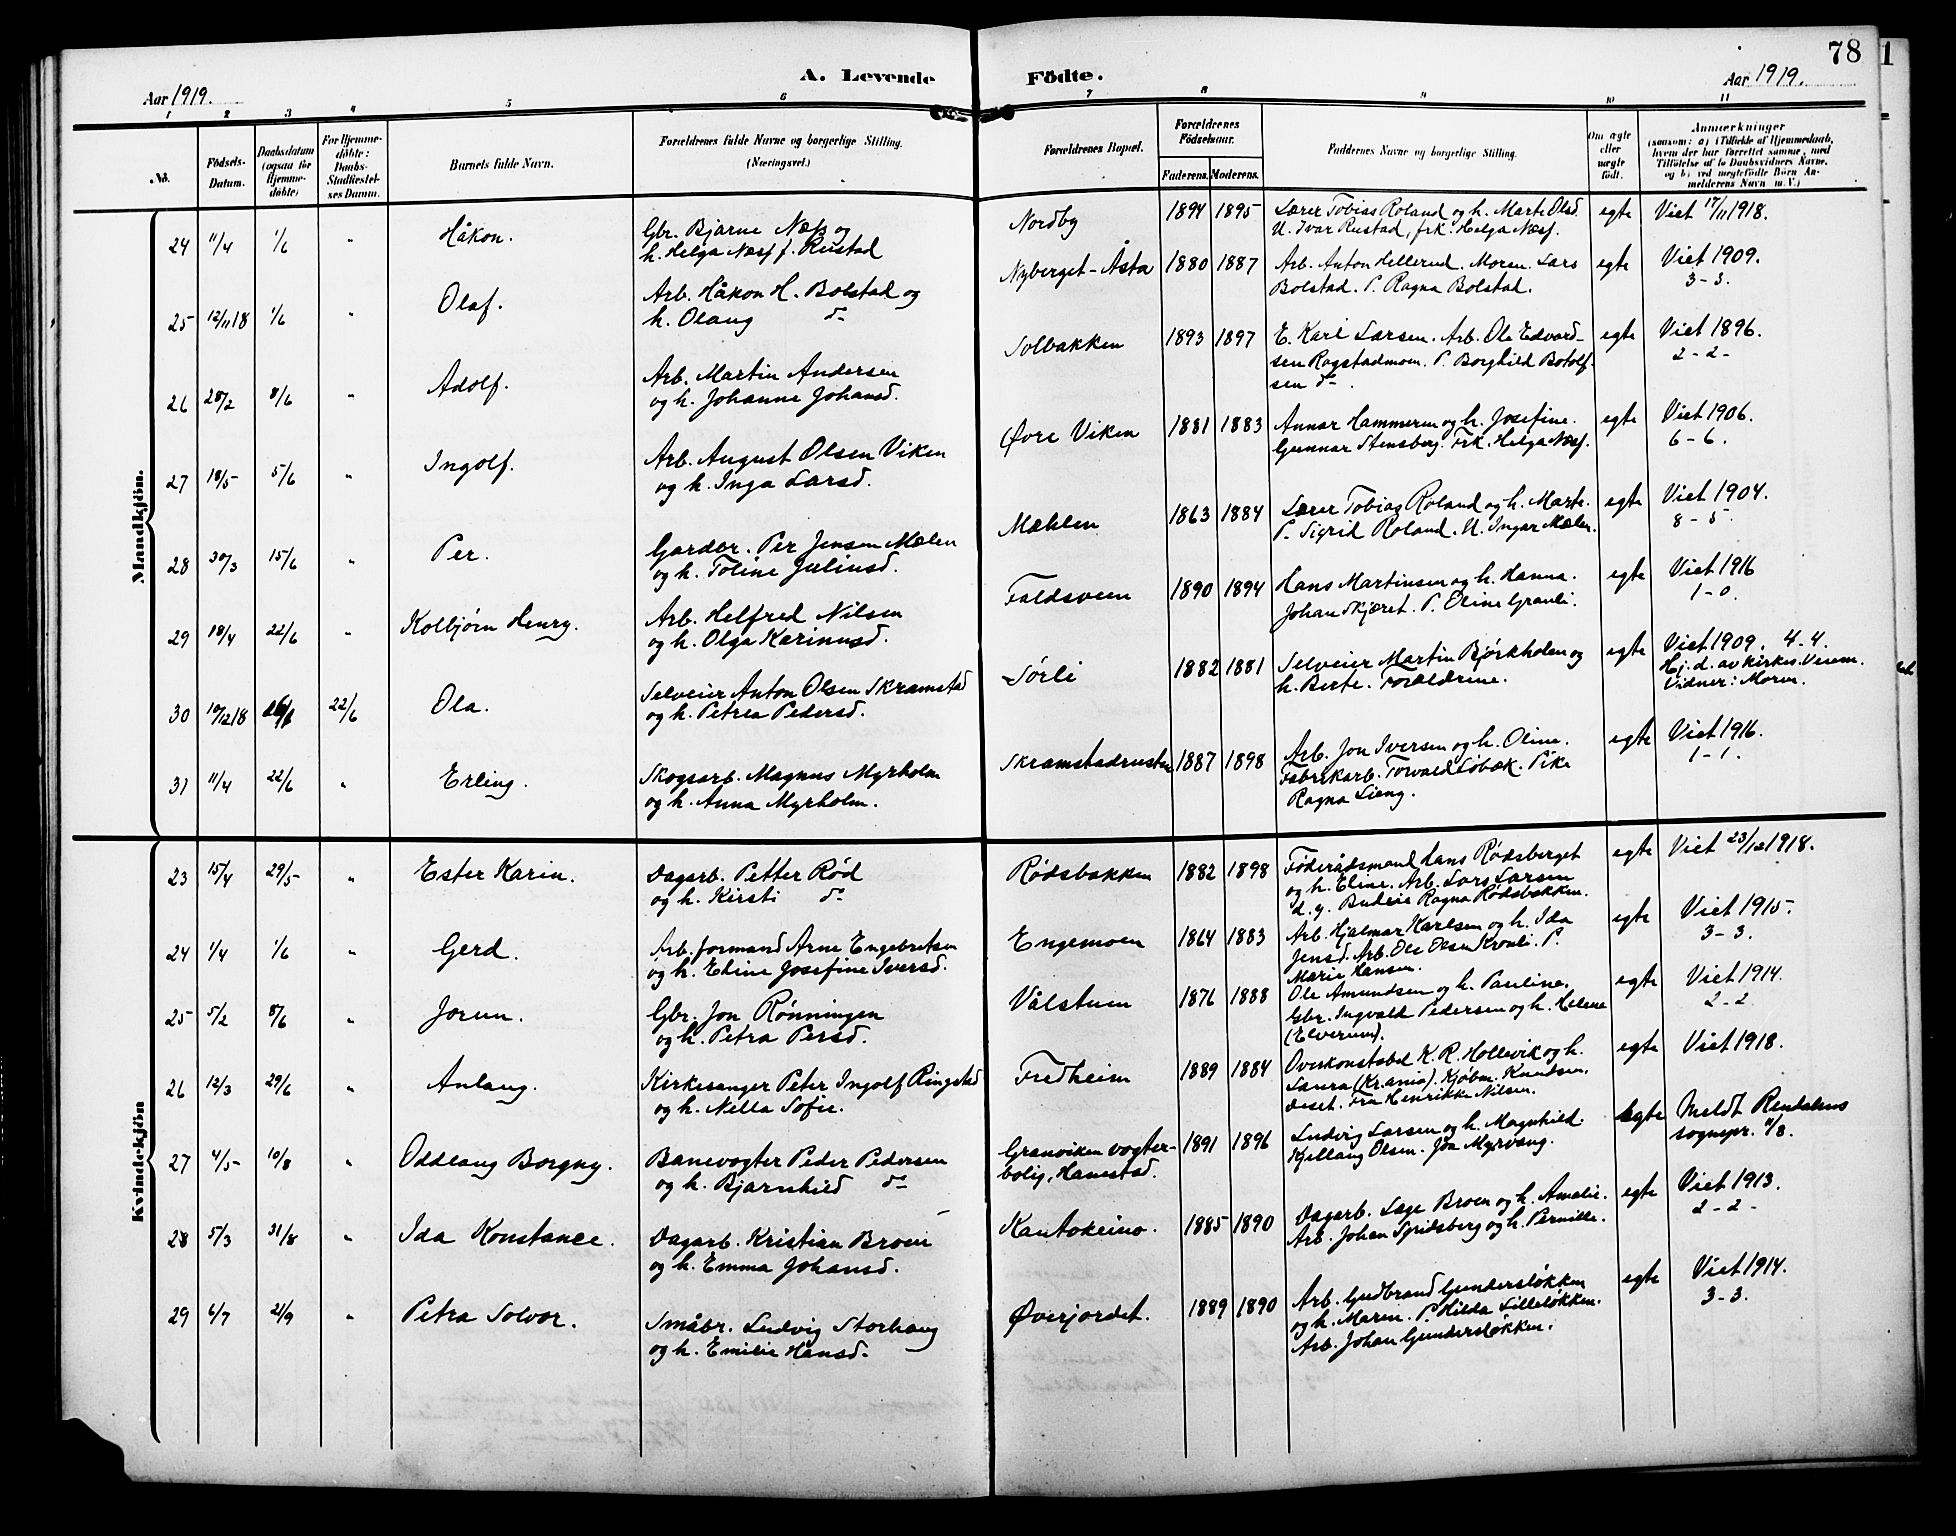 78
A. Levende Födte.
Aar 1919.
Aar 1919.
1 2 3 4 5 6 7 8 9 10 11
No.
Födsels-
Datum.
Daabsdatum
(ogsaa for
Hjemme-
döbte)
For Hjemme-
döbte:
Daabs-
Stadfæstel-
ses Datum.
Barnets fulde Navn.
Forældrenes fulde Navne og borgerlige Stilling.
(Næringsvei.)
Forældrenes Bopæl.
Forældrenes
Födselsaar.
Faderens. Moderens.
Faddernes Navne og borgerlige Stilling.
Om ægte
eller
uægte
födt.
Anmærkninger
(saasom: a) i Tilfælde af Hjemmedaab,
hvem der har forrettet samme, med
Tilföielse af to Daabsvidners Navne,
og b) ved uægtefödte Börn An-
melderens Navn m. V.)
Mandkjön.
24 11/4 1/6 " Håkon.
Gbr. Bjarne Næss og
h. Helga Næss f. Rustad
Nordby 1894 1895
Lærer Tobias Roland og h. Marte Olsd.
U. Ivar Rustad, frk. Helga Næss.
egte Viet 17/11 1918.
25 12/11 18 1/6 " Olaf.
Arb. Håkon H. Bolstad og
h. Olaug do
Nyberget - Åsta 1880 1887
Arb. Anton Hellerud. Moren. Lars
Bolstad. P. Ragna Bolstad.
egte Viet 1909.
3 - 3.
26 28/2 8/6 " Adolf.
Arb. Martin Andersen
og h. Johanne Johansd.
Solbakken 1893 1897
E. Karl Larsen. Arb. Ole Edvard-
sen Rogstadmoen. P. Borghild Botolf-
sen do.
egte Viet 1896.
2 - 2 -
27 18/5 5/6 " Ingolf.
Arb. August Olsen Viken
og h. Inga Larsd.
Øvre Viken 1881 1883
Annar Hammeren og h. Josefine.
Gunnar Stensberg. Frk. Helga Næss.
egte Viet 1906.
6 - 6.
28 30/3 15/6 " Per.
Gardbr. Per Jensen Mælen
og h. Toline Juliusd.
Mæhlen 1863 1884
Lærer Tobias Roland og h. Marte.
P. Sigrid Roland. U. Ingar Mælen.
egte Viet 1904.
8 - 5.
29 18/4 22/6 " Kolbjørn Henry.
Arb. Helfred Nilsen
og h. Olga Karinusd.
Foldsveen 1890 1894
Hans Martinsen og h. Hanna.
Johan Skjæret. P. Oline Granli.
egte Viet 1916
1 - 0.
30 10/12 18 22/6 Ola.
Selveier Anton Olsen Skramstad
og h. Petrea Pedersd.
Sørli 1882 1881
Selveier Martin Bjørkholen og
h. Berte. Forældrene.
egte Viet 1909. 4 - 4.
Hj. d. av kirkes. Veiem.
Vidner: Moren.
31 11/4 22/6 " Erling.
Skogsarb. Magnus Myrholm
og h. Anna Myrholm.
Skramstadrusten 1887 1898
Arb. Jon Iversen og h. Oline.
Fabrikarb. Torvald Løbæk. Pike
Ragna Lieng.
egte Viet 1916.
1 - 1.
Kvindekjön
23 15/4 29/5 " Ester Karin.
Dagarb. Petter Rød
og h. Kirsti do
Rødsbakken 1882 1898
Føderådsmand Hans Rødsberget
og h. Eline. Arb. Lars Larsen
d. y. Budeie Ragna Rødsbakken.
egte Viet 23/12 1918.
24 1/4 1/6 " Gerd.
Arb. formand Arne Engebretsen
og h. Eline Josefine Iversd.
Engemoen 1864 1883
Arb. Hjalmar Karlsen og h. Ida
Jensd. Arb. Ole Olsen Kroali. P.
Marie Hansen.
egte Viet 1915.
3 - 3.
25 5/2 8/6 " Jorun.
Gbr. Jon Rønningen
og h. Petra Persd.
Vålstuen 1876 1888
Ole Amundsen og h. Pauline.
Gbr. Ingvald Pedersen og h. Helene
(Elverum).
egte Viet 1914.
2 - 2
26 12/3 29/6 " Anlaug.
Kirkesanger Peter Ingolf Ringstad
og h. Nella Sofie.
Fredheim 1889 1884
Overkonstabel K. R. Hollevik og h.
Laura (Kr.ania). Kjøbm. Knudsen,
Deset. Fru Henrikke Nilsen.
egte Viet 1918.
27 4/5 10/8 " Oddlaug Borgny.
Banevogter Peder Pedersen
og h. Bjarnhild do
Granviken vogter-
bolig, Hanestad. 1891 1896
Ludvig Larsen og h. Magnhild.
Kjellaug Olsen. Jon Myrvang.
egte Meldt Rendalens
sognepr. 11/8.
28 5/3 31/8 " Ida Konstance.
Dagarb. Kristian Broen
og h. Emma Johansd.
Kautokeino. 1885 1890
Dagarb. Lage Broen og h. Amalie.
Arb. Johan Spidsberg og h. Pernille.
egte Viet 1913.
2 - 2 -
29 6/7 21/9 " Petra Solvor.
Småbr. Ludvig Storhaug
og h. Emilie Hansd.
Øverjordet. 1889 1890
Arb. Gudbrand Gundersløkken
og h. Maren. P. Hilda Lilleløkken.
Arb. Johan Gundersløkken.
egte Viet 1914.
3 - 3.